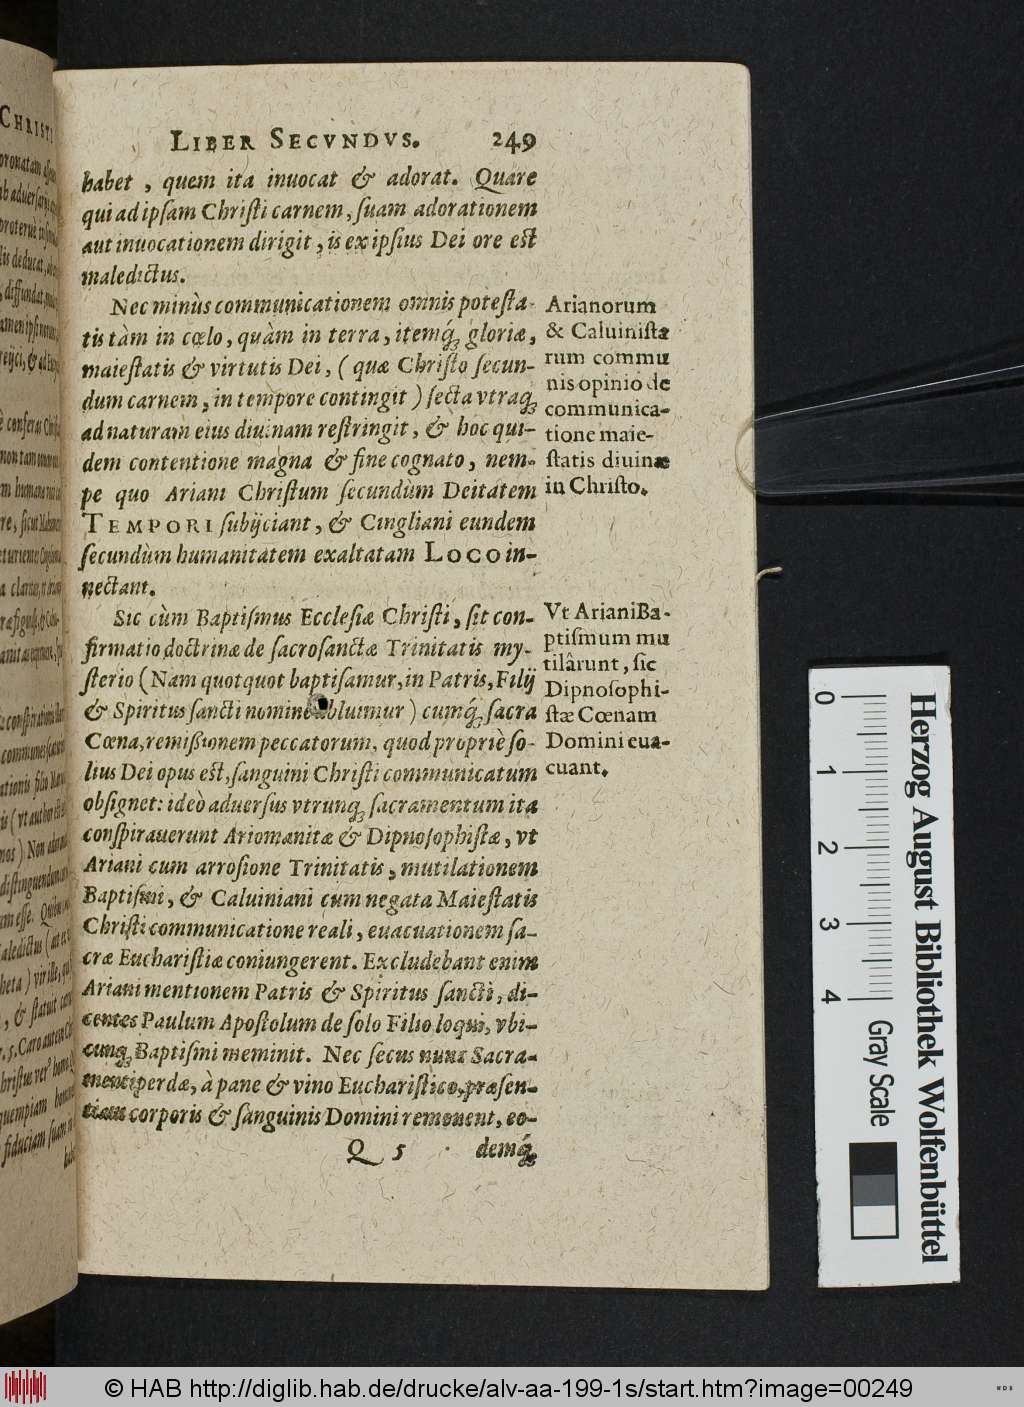 LIBER SECVNDVS. 249
habet , quem ita inuocat & adorat. Quare
qui ad ipſam Chriſti carnem, ſuam adorationem
aut inuocationem dirigit, is ex ipſius Dei ore eſt
maledictus.
Nec minùs communicationem omnis poteſta-
tis tàm in cœlo, quàm in terra, itemq́ꝫ gloriæ,
maieſtatis & virtutis Dei, ( quæ Chriſto ſecun-
dum carnem, in tempore contingit ) ſecta vtraqꝫ
ad naturam eius diuinam reſtringit, & hoc qui-
dem contentione magna & fine cognato, nem-
pe quo Ariani Chriſtum ſecundùm Deitatem
TEMPORI ſubijciant, & Cingliani eundem
ſecundùm humanitatem exaltatam LOCO in-
nectant.
Arianorum
& Caluiniſta
rum commu
nis opinio de
communica-
tione maie-
ſtatis diuinæ
in Chriſto.
Sic cùm Baptiſmus Eccleſiæ Chriſti, ſit con-
firmatio doctrinæ de ſacroſanctæ Trinitatis my-
ſterio (Nam quotquot baptiſamur, in Patris, Filij
& Spiritus ſancti nomine abluimur ) cumq́ꝫ ſacra
Cœna, remißionem peccatorum, quod propriè ſo-
lius Dei opus eſt, ſanguini Chriſti communicatum
obſignet: ideò aduerſus vtrunqꝫ ſacramentum ita
conſpirauerunt Ariomanitæ & Dipnoſophiſtæ, vt
Ariani cum arroſione Trinitatis, mutilationem
Baptiſmi, & Caluiniani cum negata Maieſtatis
Chriſti communicatione reali, euacuationem ſa-
cræ Euchariſtiæ coniungerent. Excludebant enim
Ariani mentionem Patris & Spiritus ſancti, di-
centes Paulum Apoſtolum de ſolo Filio loqui, vbi-
cunqꝫ Baptiſmi meminit. Nec ſecus nunc Sacra-
mentiperdæ, à pane & vino Euchariſtico, præſen-
tiam corporis & ſanguinis Domini remouent, eo-
Vt Ariani Ba-
ptiſmum mu
tilârunt, ſic
Dipnoſophi-
ſtæ Cœnam
Domini eua-
cuant.
Q 5 demq́ꝫ
CHRISTI
0 1 2 3 4
Herzog August Bibliothek Wolfenbüttel
Gray Scale
© HAB http://diglib.hab.de/drucke/alv-aa-199-1s/start.htm?image=00249